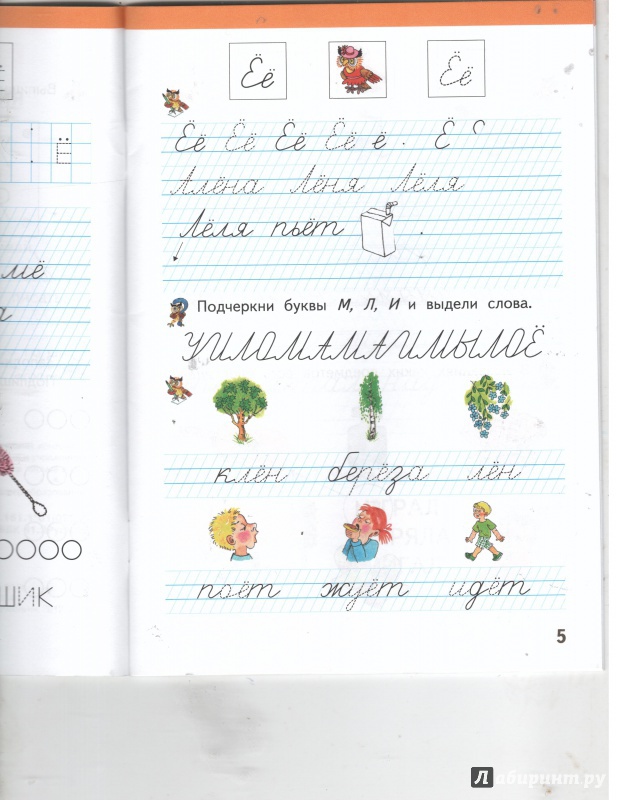 Ёё Ёё
Ёё Ёё Ёё Ёё ё . Ё
Алёна Лёня Лёля
Лёля пьёт .
Подчеркни буквы М, Л, И и выдели слова.
УИЛОМАМАИМЫЛОЁ
клён берёза лён
поёт жуёт идёт
5
Ё
мё
а
ШИК
Лабиринт.ру